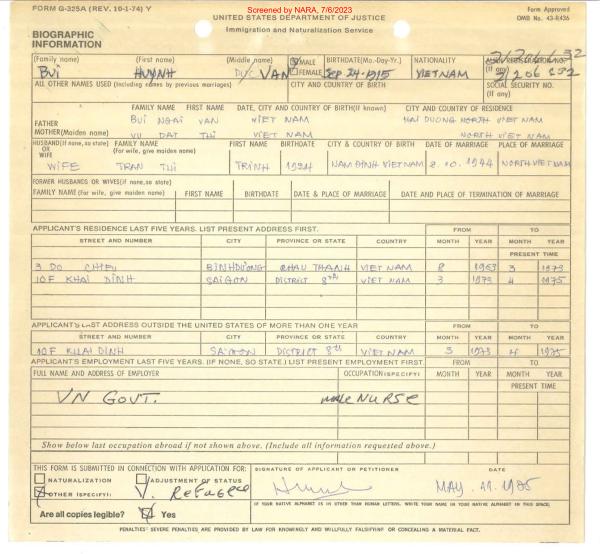 Screened by NARA, 7/6/2023
FORM G-325A (REV. 10-1-74) Y
UNITED STATES DEPARTMENT OF JUSTICE
Form Approved
OMB No. 43-R436
Immigration and Naturalization Service
BIOGRAPHIC
INFORMATION
(Family name) (First name) (Middle name) MALE BIRTHDATE(Mo.-Day-Yr.) NATIONALITY ALIEN REGISTRATION NO.
FEMALE (If any)
BUI HUYNH DUC VAN Sep 24-1915 VIETNAM
ALL OTHER NAMES USED (Including names by previous marriages) CITY AND COUNTRY OF BIRTH SOCIAL SECURITY NO.
(If any)
FAMILY NAME FIRST NAME DATE, CITY AND COUNTRY OF BIRTH(If known) CITY AND COUNTRY OF RESIDENCE
FATHER BUI NGAI VAN VIET NAM HAI DUONG NORTH VIETNAM
MOTHER(Maiden name) VU DAT THI VIET NAM NORTH VIETNAM
HUSBAND(If none, so state) FAMILY NAME FIRST NAME BIRTHDATE CITY & COUNTRY OF BIRTH DATE OF MARRIAGE PLACE OF MARRIAGE
OR (For wife, give maiden name)
WIFE
WIFE TRAN THI TRINH 1924 NAM DINH VIETNAM 2.10.1944 NORTH VIETNAM
FORMER HUSBANDS OR WIVES(if none, so state)
FAMILY NAME (For wife, give maiden name) FIRST NAME BIRTHDATE DATE & PLACE OF MARRIAGE DATE AND PLACE OF TERMINATION OF MARRIAGE
APPLICANT'S RESIDENCE LAST FIVE YEARS. LIST PRESENT ADDRESS FIRST. FROM TO
STREET AND NUMBER CITY PROVINCE OR STATE COUNTRY MONTH YEAR MONTH YEAR
PRESENT TIME
3 DO CHIEU BINHDUONG CHAU THANH VIET NAM 8 1963 3 1973
10F KHAI DINH SAIGON DISTRICT 8th VIET NAM 3 1973 4 1975
APPLICANT'S LAST ADDRESS OUTSIDE THE UNITED STATES OF MORE THAN ONE YEAR FROM TO
STREET AND NUMBER CITY PROVINCE OR STATE COUNTRY MONTH YEAR MONTH YEAR
10F KHAI DINH SAIGON DISTRICT 8th VIET NAM 3 1973 4 1975
APPLICANT'S EMPLOYMENT LAST FIVE YEARS. (IF NONE, SO STATE.) LIST PRESENT EMPLOYMENT FIRST. FROM TO
FULL NAME AND ADDRESS OF EMPLOYER OCCUPATION(SPECIFY) MONTH YEAR MONTH YEAR
PRESENT TIME
VN GOVT. male NURSE
Show below last occupation abroad if not shown above. (Include all information requested above.)
THIS FORM IS SUBMITTED IN CONNECTION WITH APPLICATION FOR: SIGNATURE OF APPLICANT OR PETITIONER DATE
NATURALIZATION ADJUSTMENT OF STATUS
OTHER (SPECIFY): V. Refugee
IF YOUR NATIVE ALPHABET IS IN OTHER THAN ROMAN LETTERS, WRITE YOUR NAME IN YOUR NATIVE ALPHABET IN THIS SPACE:
Are all copies legible? Yes
PENALTIES: SEVERE PENALTIES ARE PROVIDED BY LAW FOR KNOWINGLY AND WILLFULLY FALSIFYING OR CONCEALING A MATERIAL FACT.